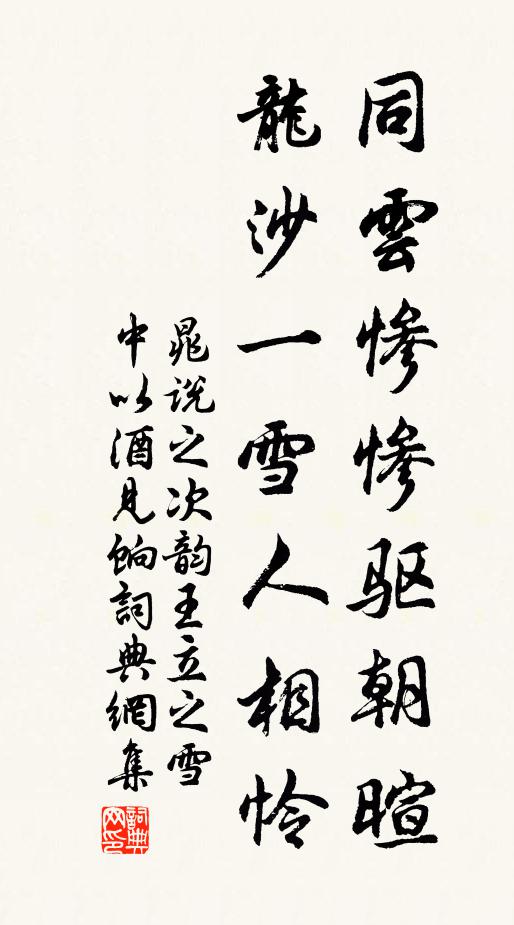 同雲慘慘驱朝暄
龍沙一雪人相怜
晁説之次韵王立之雪
中以酒見餉詞典網集
詞典
网印